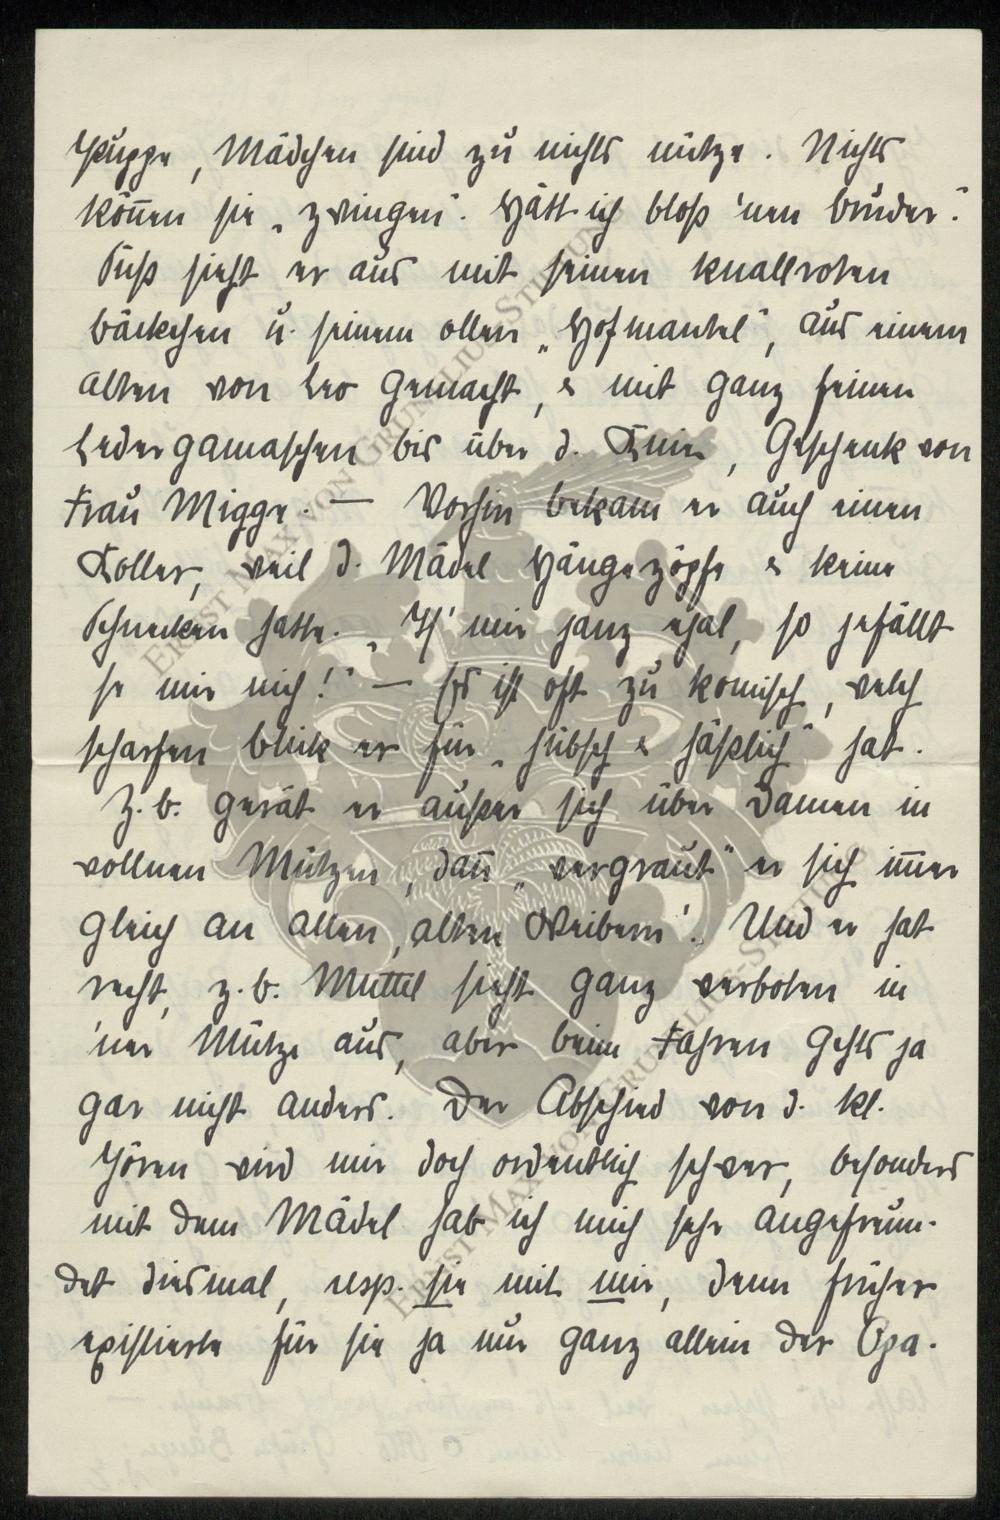 Puppe, Mädchen sind zu nichts nütze. Nichts
kön̄en sie „zwingen“. Hätt ich bloß 'nen Bruder.“
Süß sieht er aus mit seinen knallroten
Bäckchen u. seinem ollen „Hofmantel“, aus einem
alten von Leo gemacht, & mit ganz feinen
Ledergamaschen bis über d. Knie, Geschenk von
Frau Migge. — Vorhin bekam er auch einen
Koller, weil d. Mädel Hängezöpfe & keine
Schnecken hatte. „Is' mir janz ejal, so jefällt
se mir nich!“ — Es ist oft zu komisch, welch
scharfen Blick er für „hübsch & häßlich“ hat.
Z. B. gerät er außer sich über Damen in
wollnen Mützen, dan̄ „vergrault“ er sich im̄er
gleich an allen „alten Weibern“. Und er hat
recht, z. B. Muttel sieht ganz verboten in
'ner Mütze aus, aber beim Fahren gehts ja
gar nicht anders. Der Abschied von d. kl.
Jören wird mir doch ordentlich schwer, besonders
mit dem Mädel hab ich mich sehr angefreun-
det diesmal, resp. sie mit mir, denn früher
existierte für sie ja nur ganz allein der Opa.
Ernst Max von Grunelius-Stiftung
Ernst Max von Grunelius-Stiftung